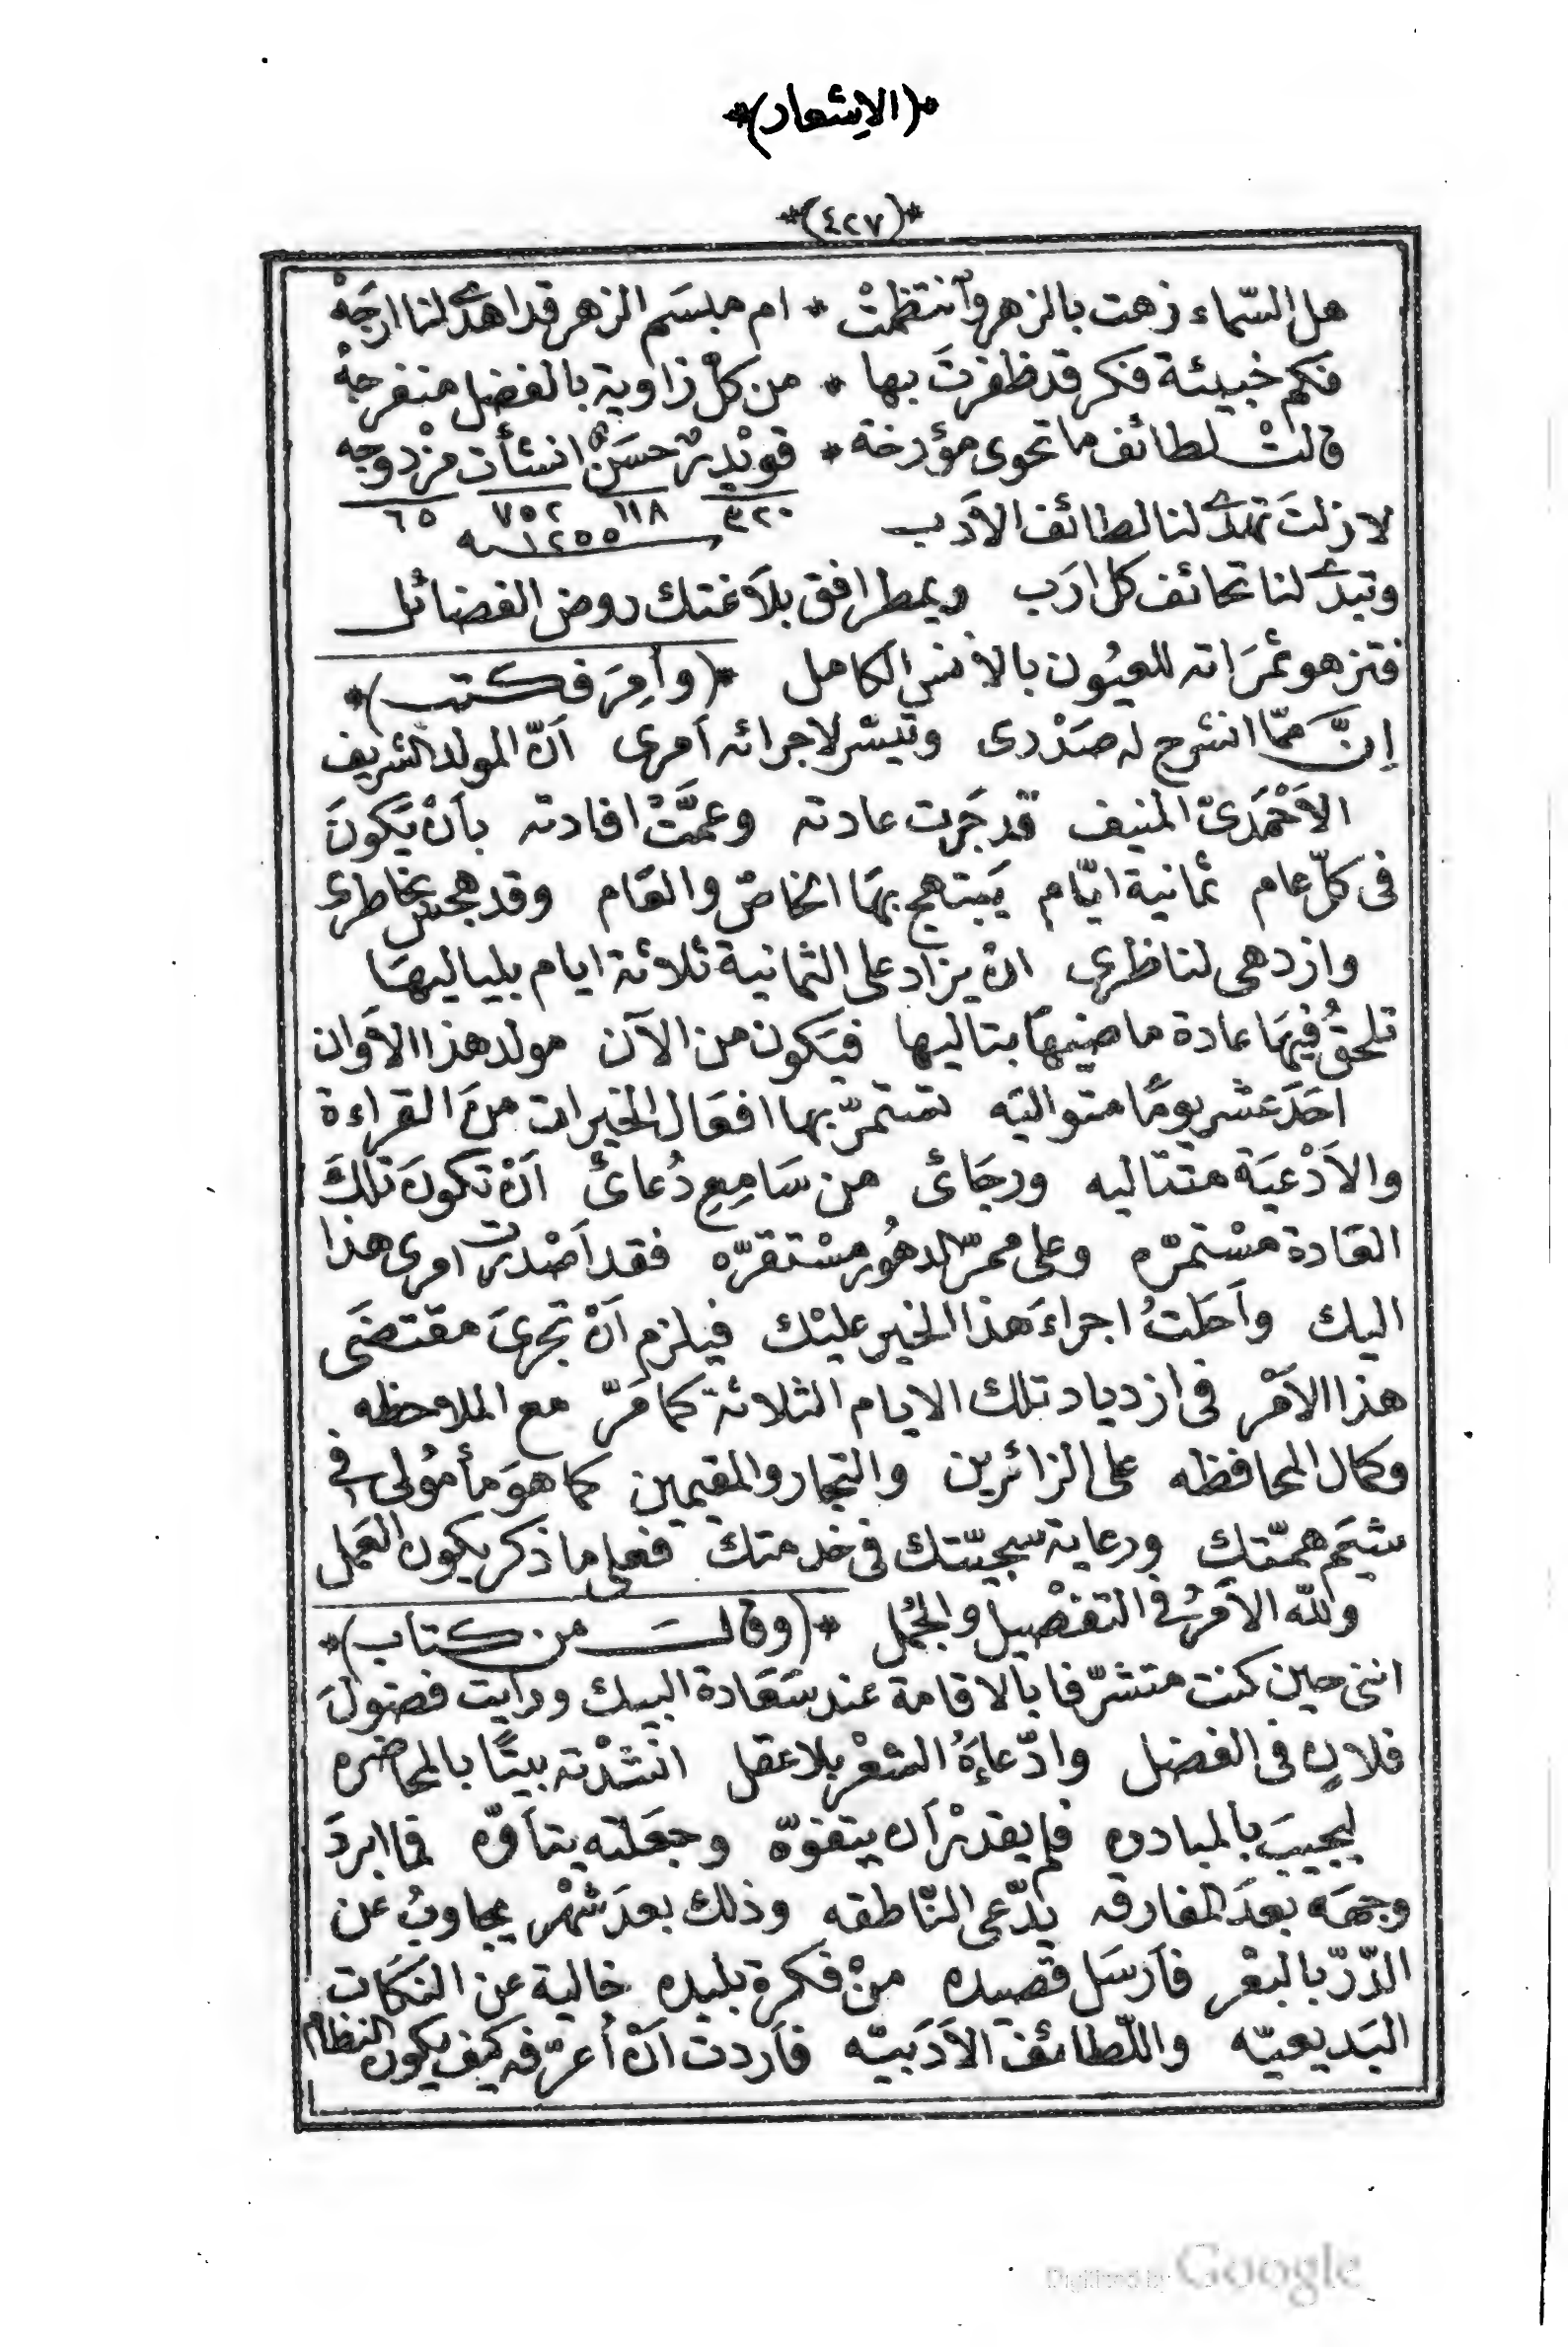 *(الاِشعار)*
*(٤٢٧)*
هل السّماء زهت بالزهر وآنتظمتْ * ام مبسَم الزهر قد اهدى لنا ارجَهْ
فكم خبيئة فكر قد ظفرتَ بها * من كلّ زاوية بالفضل منفرجهْ
قالتْ لطائف ما تحوى مؤرخة * قويْدِرٌ حسَنٌ انشأت مزْدوجه
لا زلتَ تهدى لنا لطائف الأدَب ٣٢٠ ١١٨ ٧٥٢ ٦٥
١٢٥٥ سنه
وتبدى لنا تحائف كل ارَب ويمطر افق بلاَغتك روض الفضائل
فتزهو ثمرَاته للعيُون بالأنس الكامل *(وأمِرَ فكتب)*
إنَّ ممّا انشرح له صَدْرى وتيسّر لاجرائه أمرى أنّ المولد الشريف
الأحْمَدىّ المنيف قد جَرت عادته وعمَّتْ افادته بأنْ يَكونَ
فى كلّ عام ثمانية ايّام يَبتهج بهَا الخاصّ والعَام وقد هجس بخاطرى
وازدهى لناظرى انْ يزاد على الثمانية ثلاثة ايام بلياليهَا
تلحقُ فيهَا عادة ماضيهَا بتاليها فيَكون من الآن مولد هذا الأوَان
احَدَ عشر يومًا متواليَه تستمرّ بها افعَال الخيرات منَ القراءة
والأدْعيَة متتاليه ورجَائى من سَامِعِ دُعائى أنْ تكونَ تلكَ
العَادة مسْتمرّه وعلى ممرّ الدهُور مسْتقرّه فقد أصْدرت امرى هذا
اليك وأحَلتُ اجراءَ هذا الخير عليْك فيلزم أنْ تجرىَ مقتضَى
هذا الأمْر فى ازدياد تلك الايام الثلاثة كما مَرّ مع الملاحظه
وكمال المحافظه على الزائرين والتجار والمقيمين كما هوَ مأمُولى فى
شيَم همّتك ورعاية سجيّتك فى خدمتك فعلى ما ذكر يكون العَمل
وللّه الأمْرُ فى التفصْيل والجُمل *(وقالَ من كتاب)*
اننى حين كنت متشرّفا بالاقامة عند سَعَادة البيك ورايت فضولَ
فلانٍ فى الفضل وادّعاءَهُ الشعْر بلا عقل انشدْته بيتًا بالمحاضره
ليجيبَ بالمبادره فلم يقدرْ أن يتفوّه وجعَلته يتأوّه فما ابردَ
وجهَه بعدَ المفارقه يدّعى النّاطقه وذلك بعدَ شهْر يجاوبُ عن
الدّرّ بالبعْر فأرسَل قصيده منْ فكرة بليده خالية عن النكَات
البَديعيّه واللّطائف الأدَبيّه فأردت أنْ أُعرّفه كيف يكون النظام
Digitized by Google